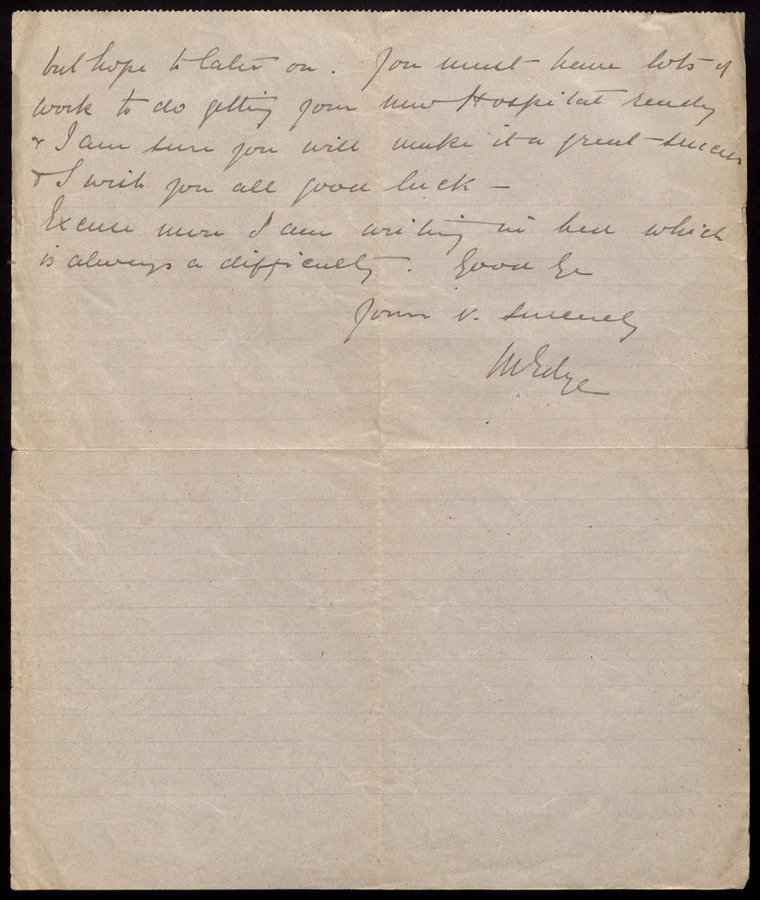 but hope to later on. You must have lots of
work to do getting your new Hospital ready
& I am sure you will make it a great success
& I wish you all good luck –
Excuse more I am writing in bed which
is always a difficulty. Good bye
Yours v. sincerely
M Edye